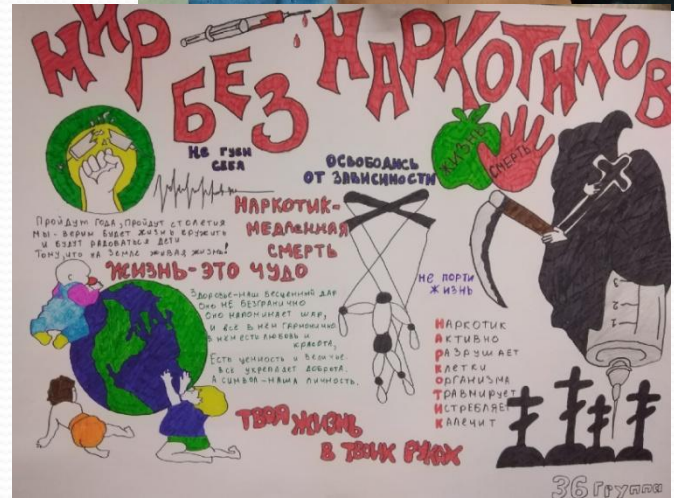 МИР
БЕЗ НАРКОТИКОВ
Не губи
себя
Освободись
от зависимости
ЖИЗНЬ
СМЕРТЬ
Пройдут года, пройдут столетия
Мы - верим будет жизнь кружить
и будут радоваться дети
Тому, что на Земле живая жизнь!
НАРКОТИК-
МЕДЛЕННАЯ
СМЕРТЬ
ЖИЗНЬ-ЭТО ЧУДО
Здоровье-наш бесценный дар
Оно не безгранично
Оно напоминает шар,
И всё в нём гармонично
В нём есть любовь и
красота,
Есть ценность и величие.
Всё укрепляет доброта.
А символ-наша личность.
Не порти
жизнь
Наркотик
Активно
Разрушает
Клетки
Организма
Травмирует
Истребляет
Калечит
3
2
1
ТВОЯ ЖИЗНЬ
В ТВОИХ РУКАХ
36 Группа